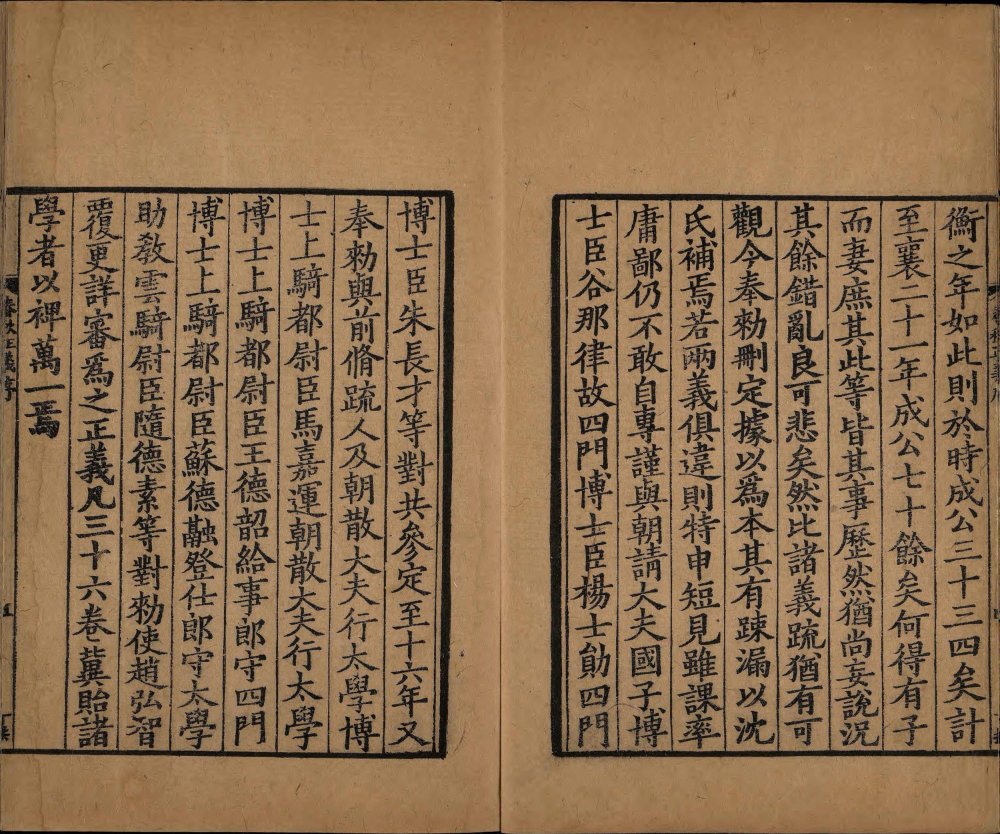 衡之年如此則於時成公三十三四矣計
至襄二十一年成公七十餘矣何得有子
而妻庶其此等皆其事歷然猶尚妄說況
其餘錯亂良可悲矣然比諸義疏猶有可
觀今奉勑刪定據以爲本其有踈漏以沈
氏補焉若兩義俱違則特申短見雖課率
庸鄙仍不敢自專謹與朝請大夫國子博
士臣谷那律故四門博士臣楊士勛四門
博士臣朱長才等對共參定至十六年又
奉勑與前脩疏人及朝散大夫行太學博
士上騎都尉臣馬嘉運朝散大夫行太學
博士上騎都尉臣王德韶給事郎守四門
博士上騎都尉臣蘇德融登仕郎守太學
助教雲騎尉臣隨德素等對勑使趙弘智
覆更詳審爲之正義凡三十六卷冀貽諸
學者以裨萬一焉
春秋正義序
五